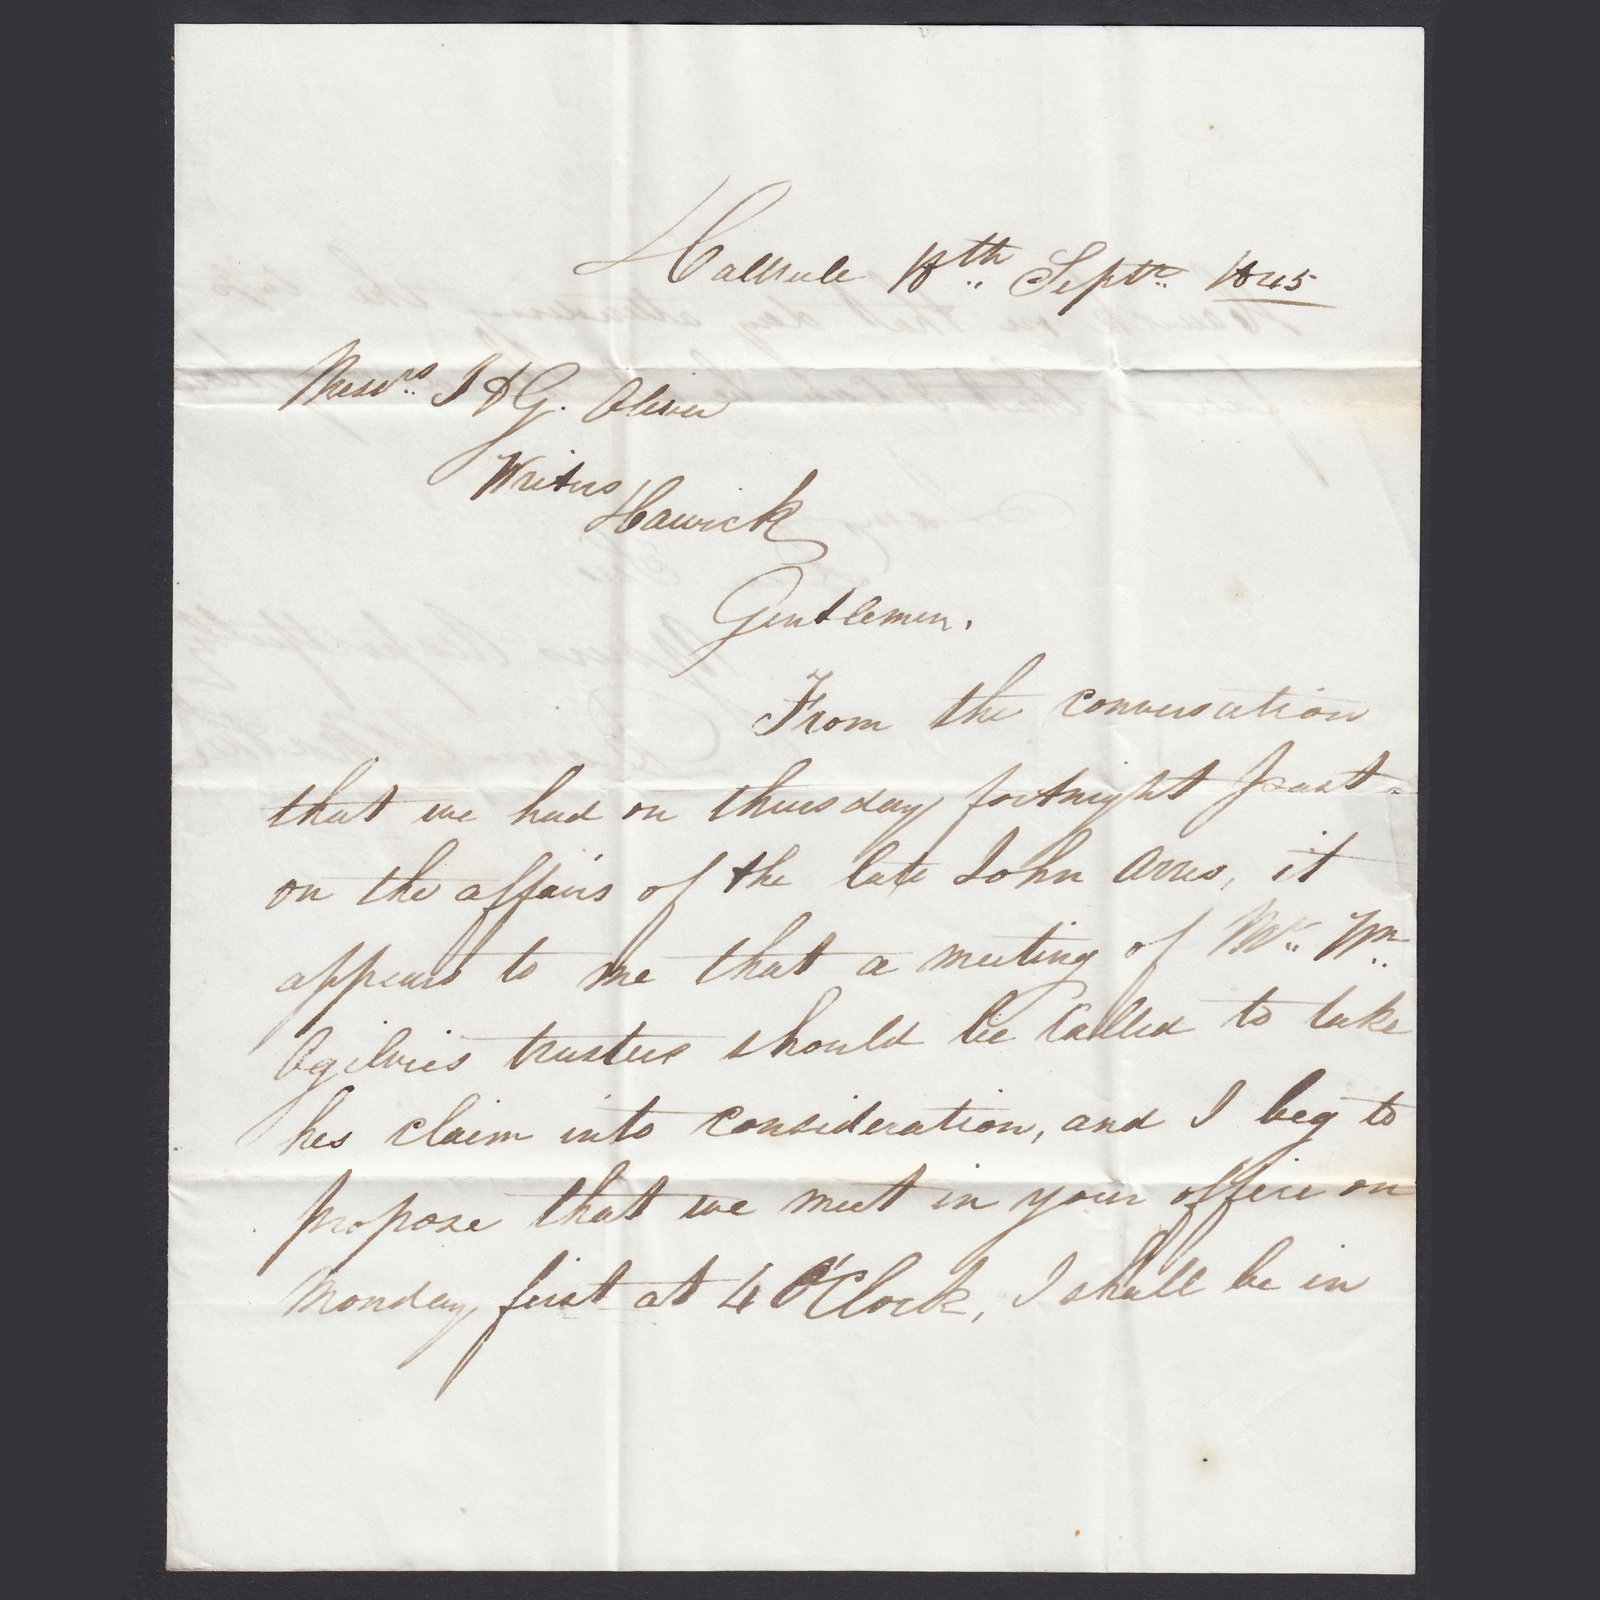 Hallrule 18th Septr 1845
Messrs J & G. Oliver
Writers
Hawick
Gentlemen.
From the conversation
that we had on thursday fortnight past
on the affairs of the late John Arres, it
appears to me that a meeting of Mr Wm
Ogilvies trustees should be Called to take
his claim into consideration, and I beg to
propose that we meet in your office on
Monday first at 4 O'Clock, I shall be in